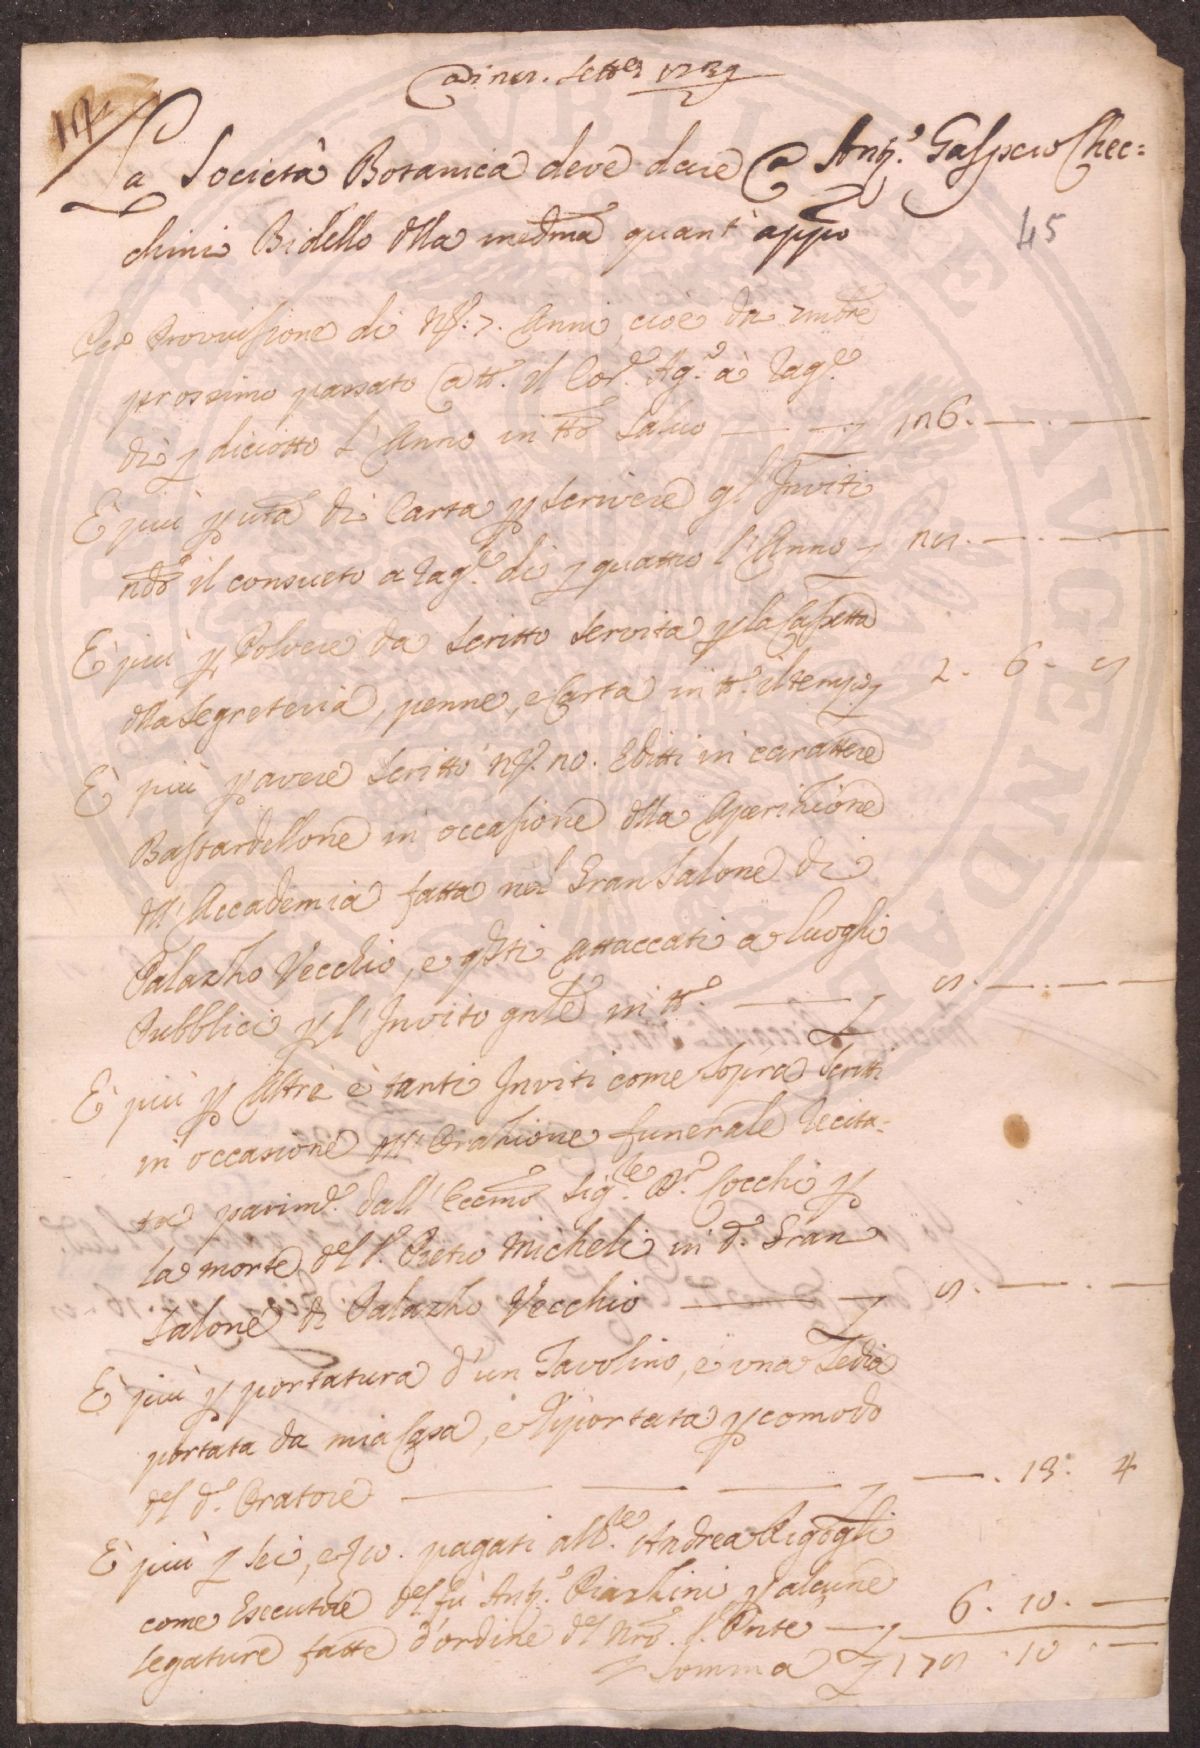 Adi 25. Sett.e 1739
La Società Botanica deve dare a Ant.o Gaspero Chec=
chini Bidello dlla medma quant' app.o
45
Per Provvisione di n.o 7. Anni, cioè da 7mbre
prossimo passato a tt.o il Cor.e Ag.o à rag.e
di £ diciotto l'Anno in tto Salvo — £ 126. — . —
E più p uta di Carta p scrivere gl'Inviti
il consueto a rag.e di £ quattro l'Anno £ 28. — . —
E più p Polvere da Scritto servita p la Cassetta
dlla Segreteria, penne, e Carta in tt.o il tempo £ 2. 6. 8
E più p avere scritto n.o 20. Editti in carattere
Bastardellone in occasione dlla Aperizione
dll'Accademia fatta nel Gran Salone di
Palazzo Vecchio, e qsti attaccati a luoghi
Pubblici p l'Invito gnle in tt.o — £ 5. — . —
E più p Altre è tanti Inviti come sopra scritti
in occasione dll'Orazione funerale recita=
ta parim.e dall'Eccmo Sig.re D.r Cocchi p
la morte del S.r Pietro Micheli in d.o Gran
Salone di Palazzo Vecchio — £ 5. — . —
E più p portatura d'un Tavolino, e una Sedia
portata da mia Casa, e riportata p comodo
del d.o Oratore — — — £ — . 13. 4
E più £ sei, e 10. pagati al S.re Andrea Rigogli
come Esecutore del fù Ant.o Piazzini p alcune
legature fatte d'ordine del nro. S. Pnte — £ 6. 10. —
Somma £ 173 . 10 . —